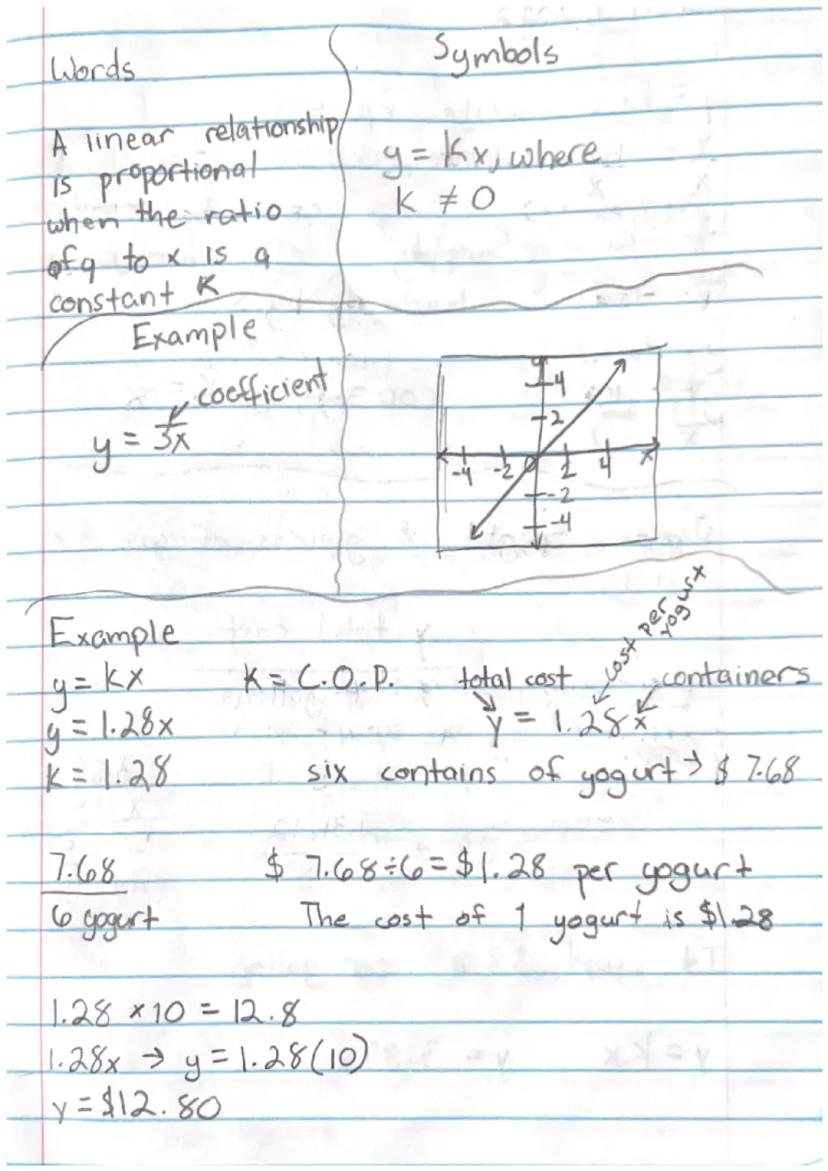 Words
A linear relationship
is proportional
when the ratio
of y to x is a
constant K
Symbols
y = Kx, where
K ≠ 0
Example
coefficient
y = 3x
y
4
2
-4 -2 0 2 4 x
-2
-4
Example
y = kx
y = 1.28x
K = 1.28
K = C.O.P.
total cost
cost per
yogurt
containers
y = 1.28x
six contains of yogurt → $ 7.68
7.68
6 yogurt
$ 7.68÷6 = $1.28 per yogurt
The cost of 1 yogurt is $1.28
1.28 × 10 = 12.8
1.28x → y = 1.28(10)
y = $12.80